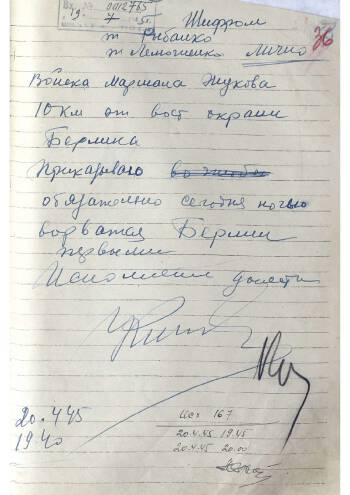 0012765
Шифром
т Рыбалко
т Лелюшенко Лично
36
Войска Маршала Жукова
10 км от вост окраин
Берлина
Приказываю
обязательно сегодня ночью
ворватся Берлин
первыми
Исполнение донести
20.4.45
19.40
Исх 167
20.4.45 19.45
20.4.45 20.00